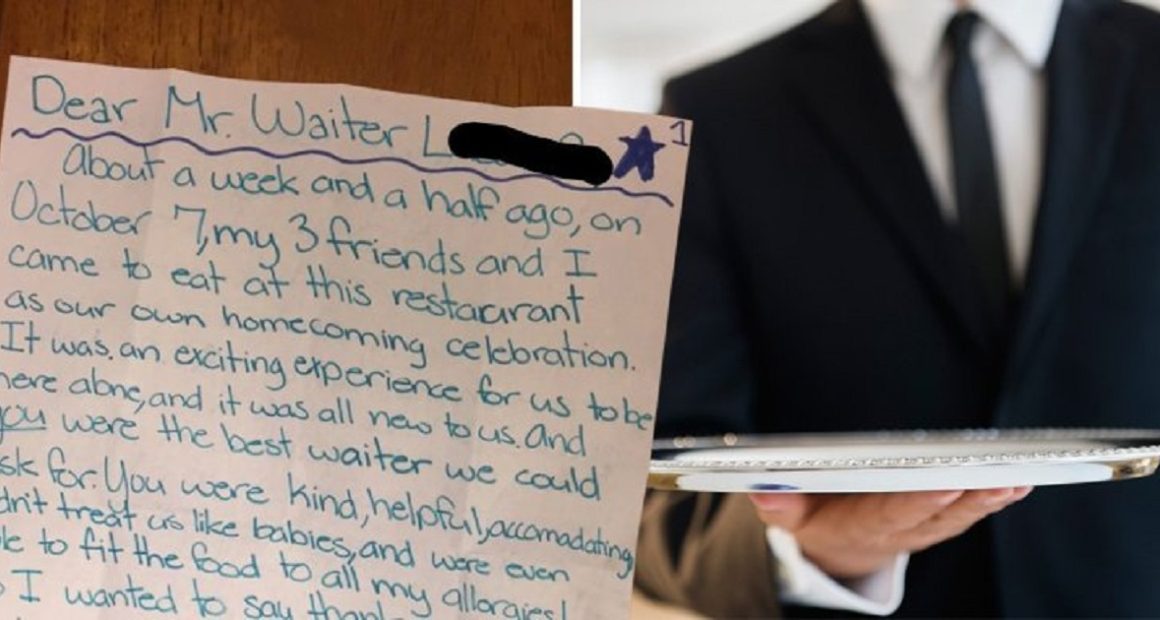 Dear Mr. Waiter L
1
About a week and a half ago, on
October 7, my 3 friends and I
came to eat at this restaurant
as our own homecoming celebration.
It was an exciting experience for us to be
here alone, and it was all new to us. And
you were the best waiter we could
ask for. You were kind, helpful, accomadating,
didn't treat us like babies, and were even
able to fit the food to all my allorgies!
I wanted to say thank